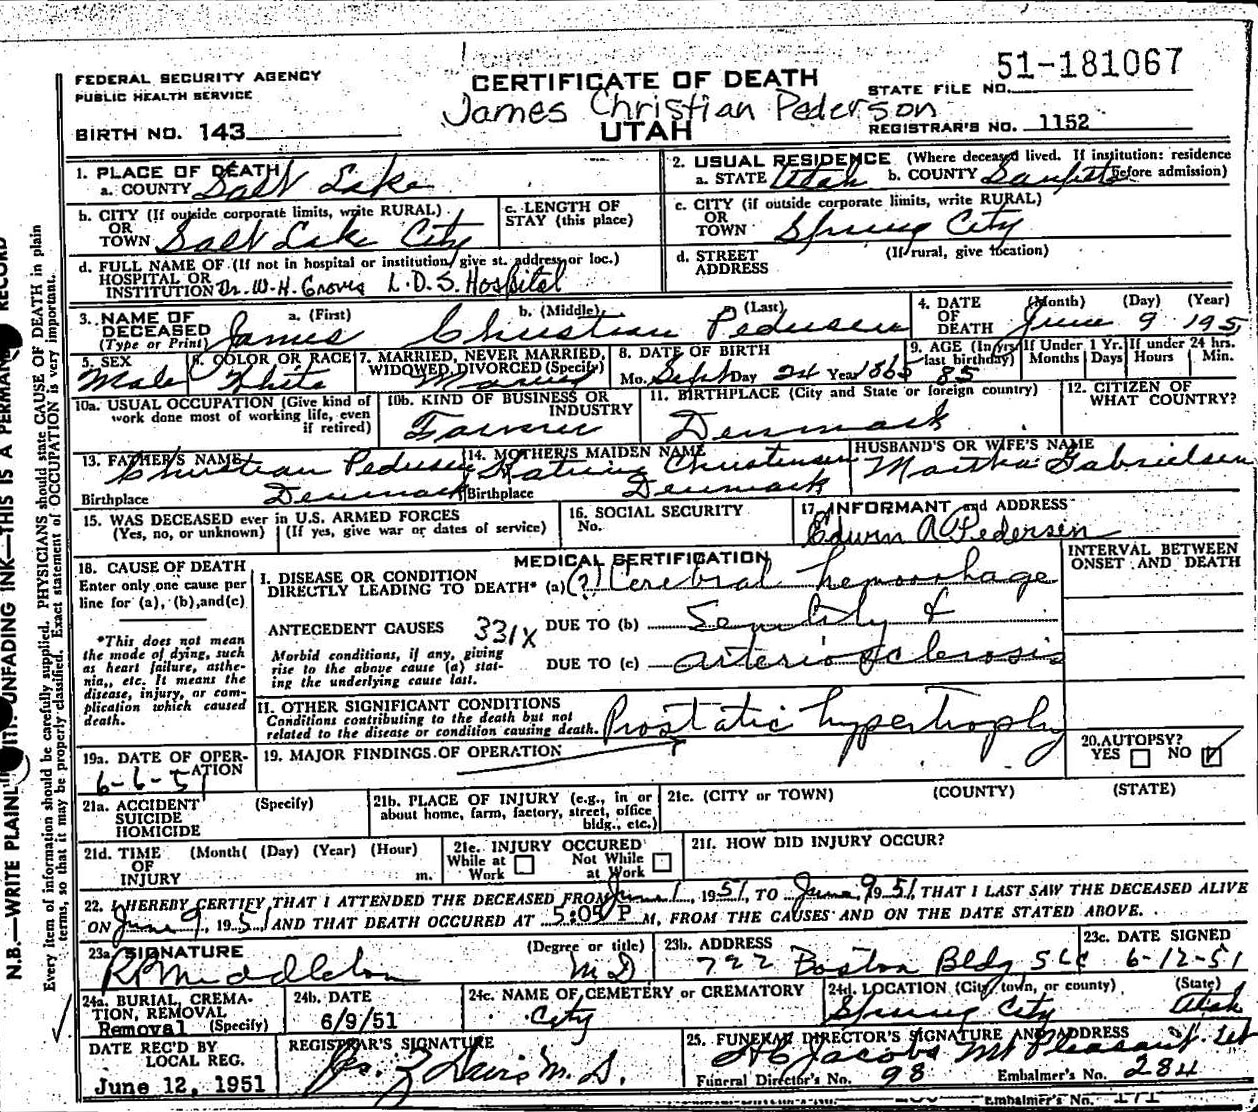 51-181067
FEDERAL SECURITY AGENCY
PUBLIC HEALTH SERVICE
CERTIFICATE OF DEATH
STATE FILE NO.
James Christian Pederson
BIRTH NO. 143
UTAH
REGISTRAR'S NO. 1152
1. PLACE OF DEATH
a. COUNTY Salt Lake
2. USUAL RESIDENCE (Where deceased lived. If institution: residence before admission)
a. STATE Utah b. COUNTY Sanpete
b. CITY (If outside corporate limits, write RURAL)
OR
TOWN Salt Lake City
c. LENGTH OF
STAY (this place)
c. CITY (if outside corporate limits, write RURAL)
OR
TOWN Spring City
d. FULL NAME OF (If not in hospital or institution, give st. address or loc.)
HOSPITAL OR
INSTITUTION Dr. W. H. Groves L.D.S. Hospital
d. STREET (If rural, give location)
ADDRESS
3. NAME OF
DECEASED
(Type or Print)
a. (First) b. (Middle) (Last)
James Christian Pedersen
4. DATE (Month) (Day) (Year)
OF
DEATH June 9 195
5. SEX
Male
6. COLOR OR RACE
White
7. MARRIED, NEVER MARRIED,
WIDOWED, DIVORCED (Specify)
Married
8. DATE OF BIRTH
Mo. Sept Day 24 Year 1865
9. AGE (In yrs. last birthday)
85
If Under 1 Yr.
Months Days
If under 24 hrs.
Hours Min.
10a. USUAL OCCUPATION (Give kind of
work done most of working life, even
if retired)
10b. KIND OF BUSINESS OR
INDUSTRY
Farmer
11. BIRTHPLACE (City and State or foreign country)
Denmark
12. CITIZEN OF
WHAT COUNTRY?
13. FATHER'S NAME
Christian Pedersen
Birthplace Denmark
14. MOTHER'S MAIDEN NAME
Katrine Christensen
Birthplace Denmark
HUSBAND'S OR WIFE'S NAME
Martha Gabrielsen
15. WAS DECEASED ever in U.S. ARMED FORCES
(Yes, no, or unknown) (If yes, give war or dates of service)
16. SOCIAL SECURITY
No.
17. INFORMANT and ADDRESS
Edwin A Pedersen
18. CAUSE OF DEATH
Enter only one cause per
line for (a), (b), and (c)
*This does not mean
the mode of dying, such
as heart failure, asthe-
nia,, etc. It means the
disease, injury, or com-
plication which caused
death.
MEDICAL SERTIFICATION
INTERVAL BETWEEN
ONSET AND DEATH
I. DISEASE OR CONDITION
DIRECTLY LEADING TO DEATH* (a) (?) Cerebral hemorrhage
ANTECEDENT CAUSES 331X DUE TO (b) Senility &
Morbid conditions, if any, giving
rise to the above cause (a) stat-
ing the underlying cause last.
DUE TO (c) arteriosclerosis
II. OTHER SIGNIFICANT CONDITIONS
Conditions contributing to the death but not
related to the disease or condition causing death.
Prostatic hypertrophy
19a. DATE OF OPER-
ATION
6-6-51
19. MAJOR FINDINGS OF OPERATION
20. AUTOPSY?
YES NO
21a. ACCIDENT (Specify)
SUICIDE
HOMICIDE
21b. PLACE OF INJURY (e.g., in or
about home, farm, factory, street, office
bldg., etc.)
21c. (CITY or TOWN) (COUNTY) (STATE)
21d. TIME (Month( (Day) (Year) (Hour)
OF
INJURY m.
21e. INJURY OCCURED
While at Work Not While at Work
21f. HOW DID INJURY OCCUR?
22. I HEREBY CERTIFY THAT I ATTENDED THE DECEASED FROM June 1, 1951, TO June 9, 1951, THAT I LAST SAW THE DECEASED ALIVE
ON June 9, 1951 AND THAT DEATH OCCURED AT 5:05 P M, FROM THE CAUSES AND ON THE DATE STATED ABOVE.
23a. SIGNATURE (Degree or title)
R P Middleton M D
23b. ADDRESS
722 Boston Bldg SLC
23c. DATE SIGNED
6-12-51
24a. BURIAL, CREMA-
TION, REMOVAL
Removal (Specify)
24b. DATE
6/9/51
24c. NAME OF CEMETERY or CREMATORY
City
24d. LOCATION (City, town, or county) (State)
Spring City Utah
DATE REC'D BY
LOCAL REG.
June 12, 1951
REGISTRAR'S SIGNATURE
Davis M. D.
25. FUNERAL DIRECTOR'S SIGNATURE AND ADDRESS
Jacobs Mt Pleasant
Funeral Director's No. 98 Embalmer's No. 284
Embalmer's No. 171
N.B.—WRITE PLAINLY WITH UNFADING INK—THIS IS A PERMANENT RECORD
Every item of information should be carefully supplied. PHYSICIANS should state CAUSE OF DEATH in plain
terms, so that it may be properly classified. Exact statement of OCCUPATION is very important.